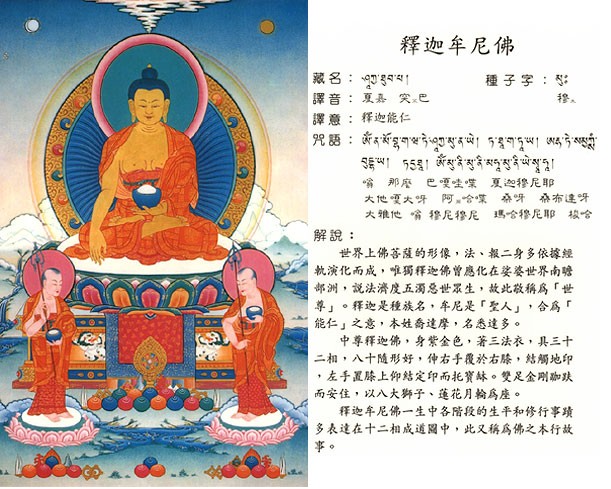 釋迦牟尼佛
藏名：ཤཱཀྱ་ཐུབ་པ། 種子字：མུཿ
譯音：夏嘉 突巴 穆
譯意：釋迦能仁
咒語：ༀ་ན་མོ་བྷ་ག་ཝ་ཏེ་ཤཱཀྱ་མུ་ན་ཡེ། ཏ་ཐཱ་ག་ཏཱ་ཡ།
བུདྡྷ་ཡ། ཏདྱ་ཐཱ། ༀ་མུ་ནི་མུ་ནི་མ་ཧཱ་མུ་ནི་ཡེ་སྭཱ་ཧཱ།
嗡 那麼 巴嘎哇喋 夏迦穆尼耶
大他嘎大呀 阿哈喋 桑呀 桑布達呀
大雅他 嗡 穆尼穆尼 瑪哈穆尼耶 梭哈
解說：
世界上佛菩薩的形像，法、報二身多依據經
軌演化而成，唯獨釋迦佛曾應化在娑婆世界南瞻
部洲，説法濟度五濁惡世眾生，故此敬稱爲「世
尊」。釋迦是種族名，牟尼是「聖人」，合爲「
能仁」之意，本姓喬達摩，名悉達多。
中尊釋迦佛，身紫金色，著三法衣，具三十
二相，八十隨形好，伸右手覆於右膝，結觸地印
，左手置膝上仰結定印而托寶缽。雙足金剛跏趺
而安住，以八大獅子、蓮花月輪爲座。
釋迦牟尼佛一生中各階段的生平和修行事蹟
多表達在十二相成道圖中，此又稱爲佛之本行故
事。